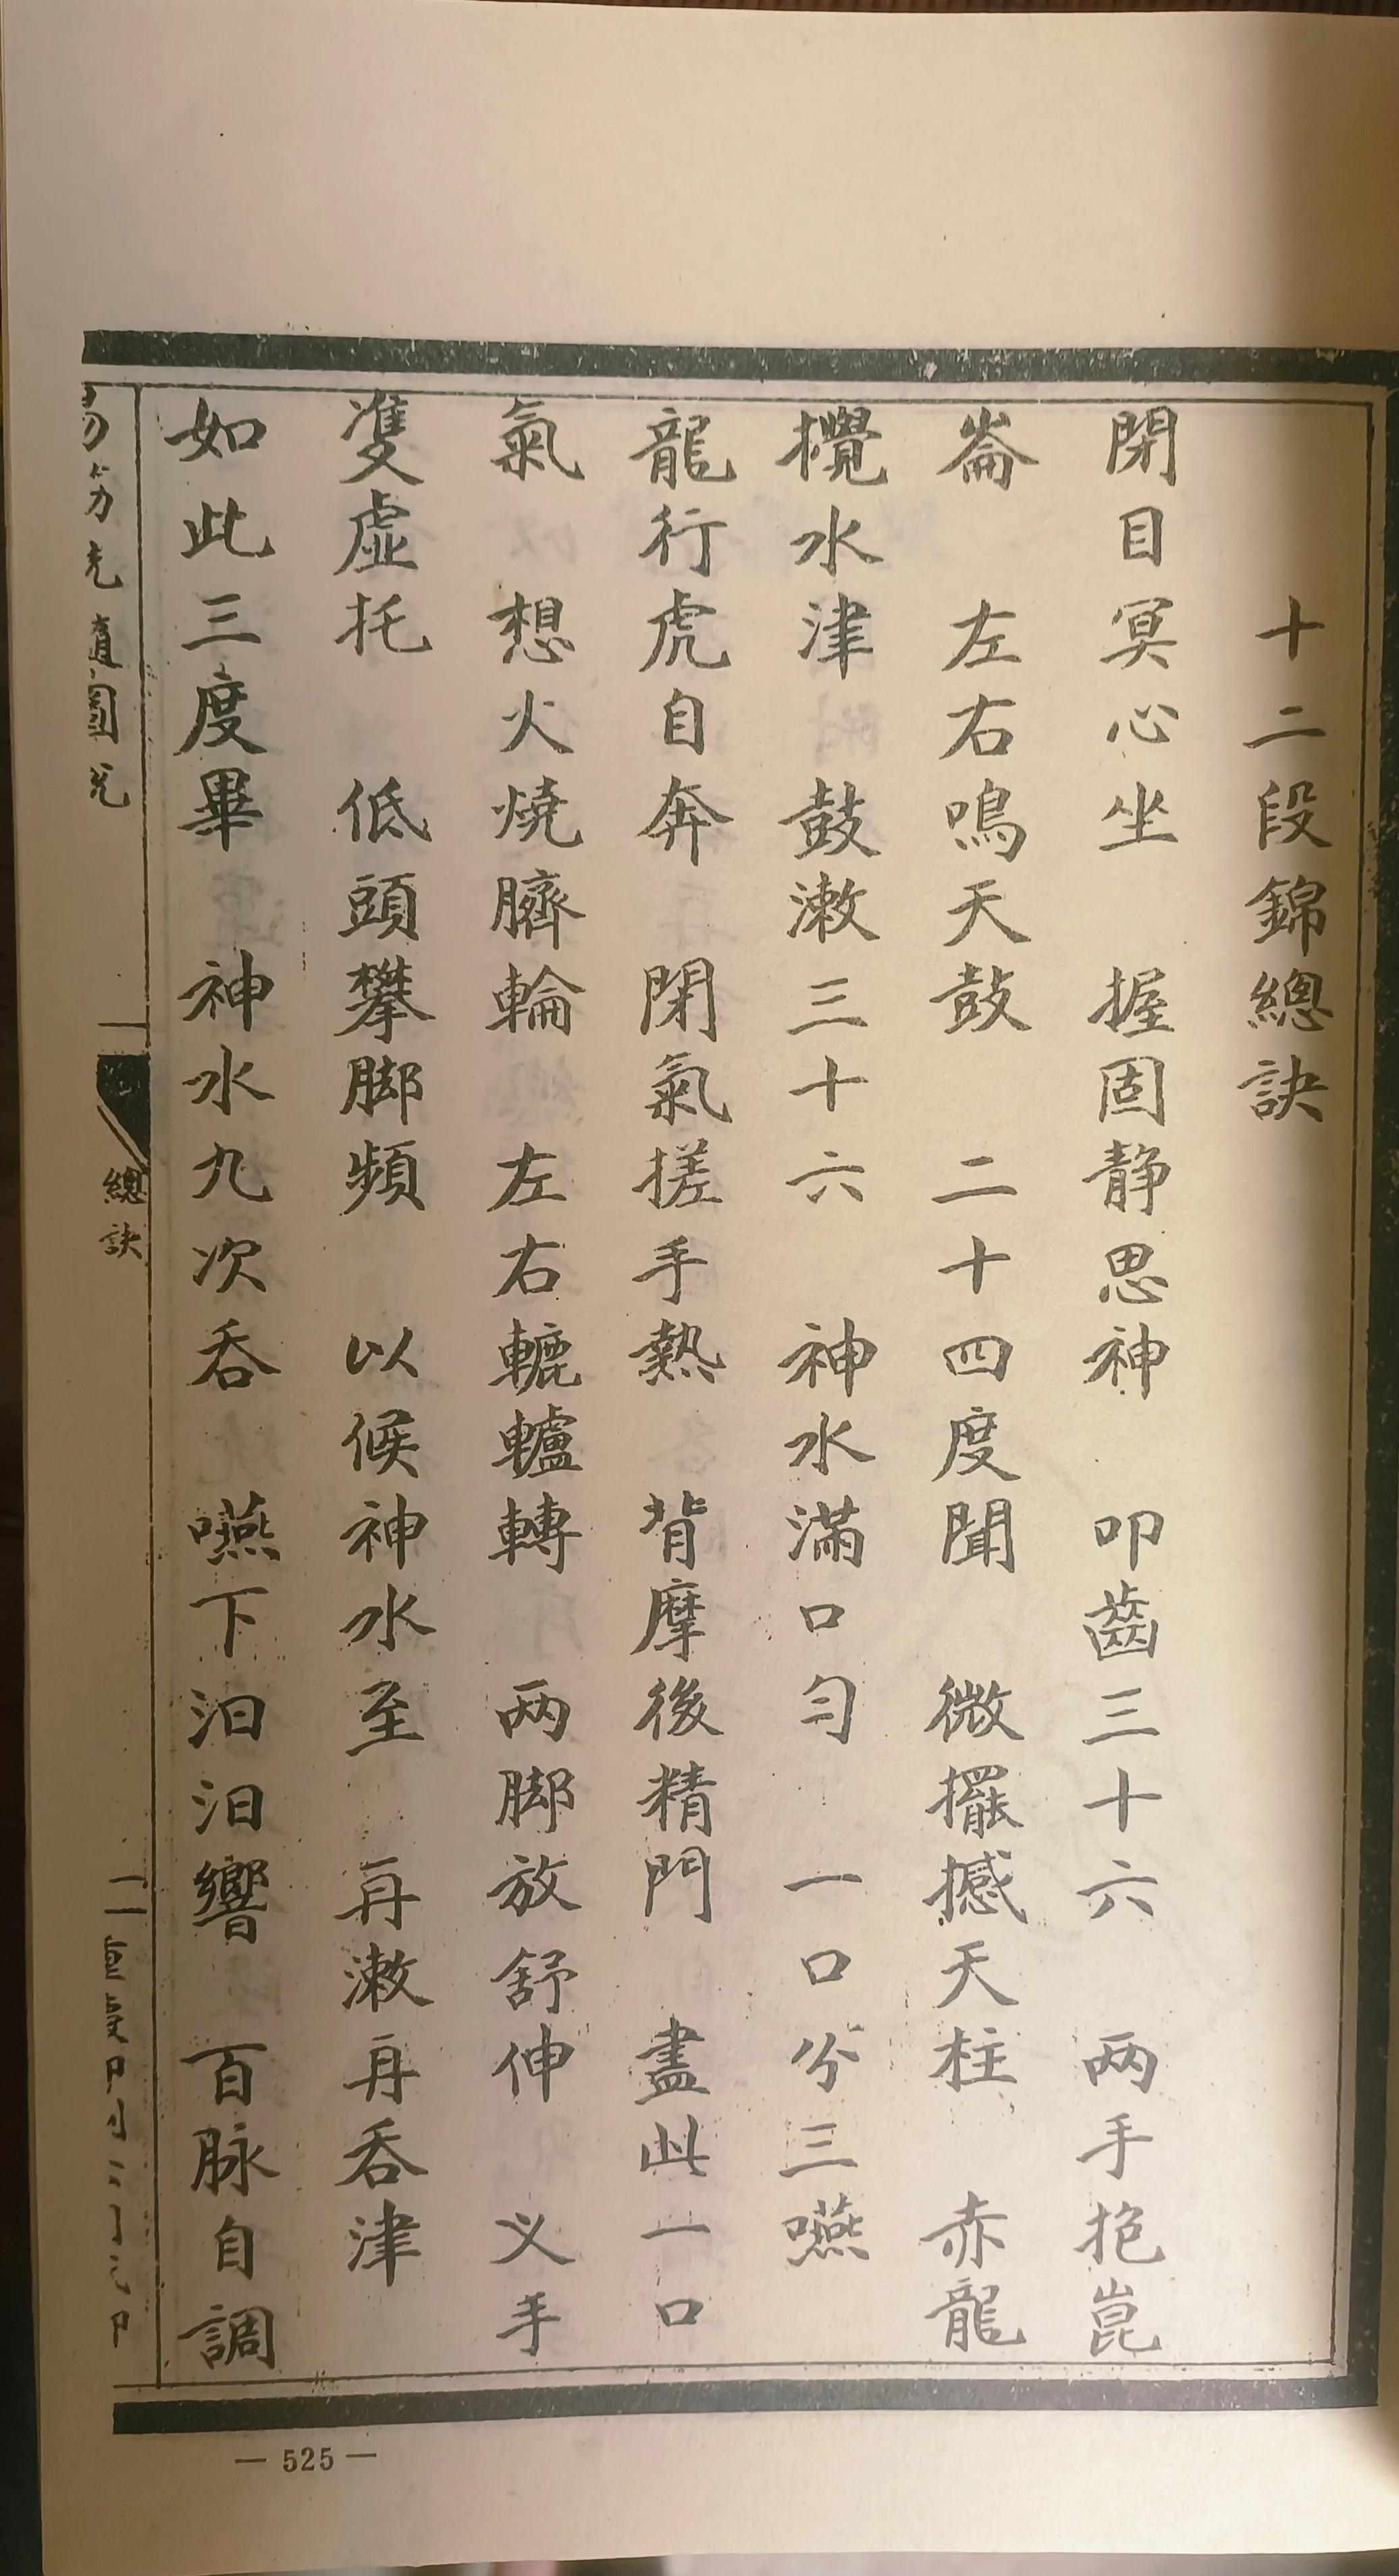 十二段錦總訣
閉目冥心坐　握固静思神　叩齒三十六　两手抱崑
崙　左右鳴天鼓　二十四度聞　微擺撼天柱　赤龍
攪水津　鼓漱三十六　神水滿口匀　一口分三嚥
龍行虎自奔　閉氣搓手熱　背摩後精門　盡此一口
氣　想火燒臍輪　左右轆轤轉　两脚放舒伸　义手
雙虛托　低頭攀脚頻　以候神水至　再漱再吞津
如此三度畢　神水九次吞　嚥下汩汩響　百脉自調
總訣
— 525 —